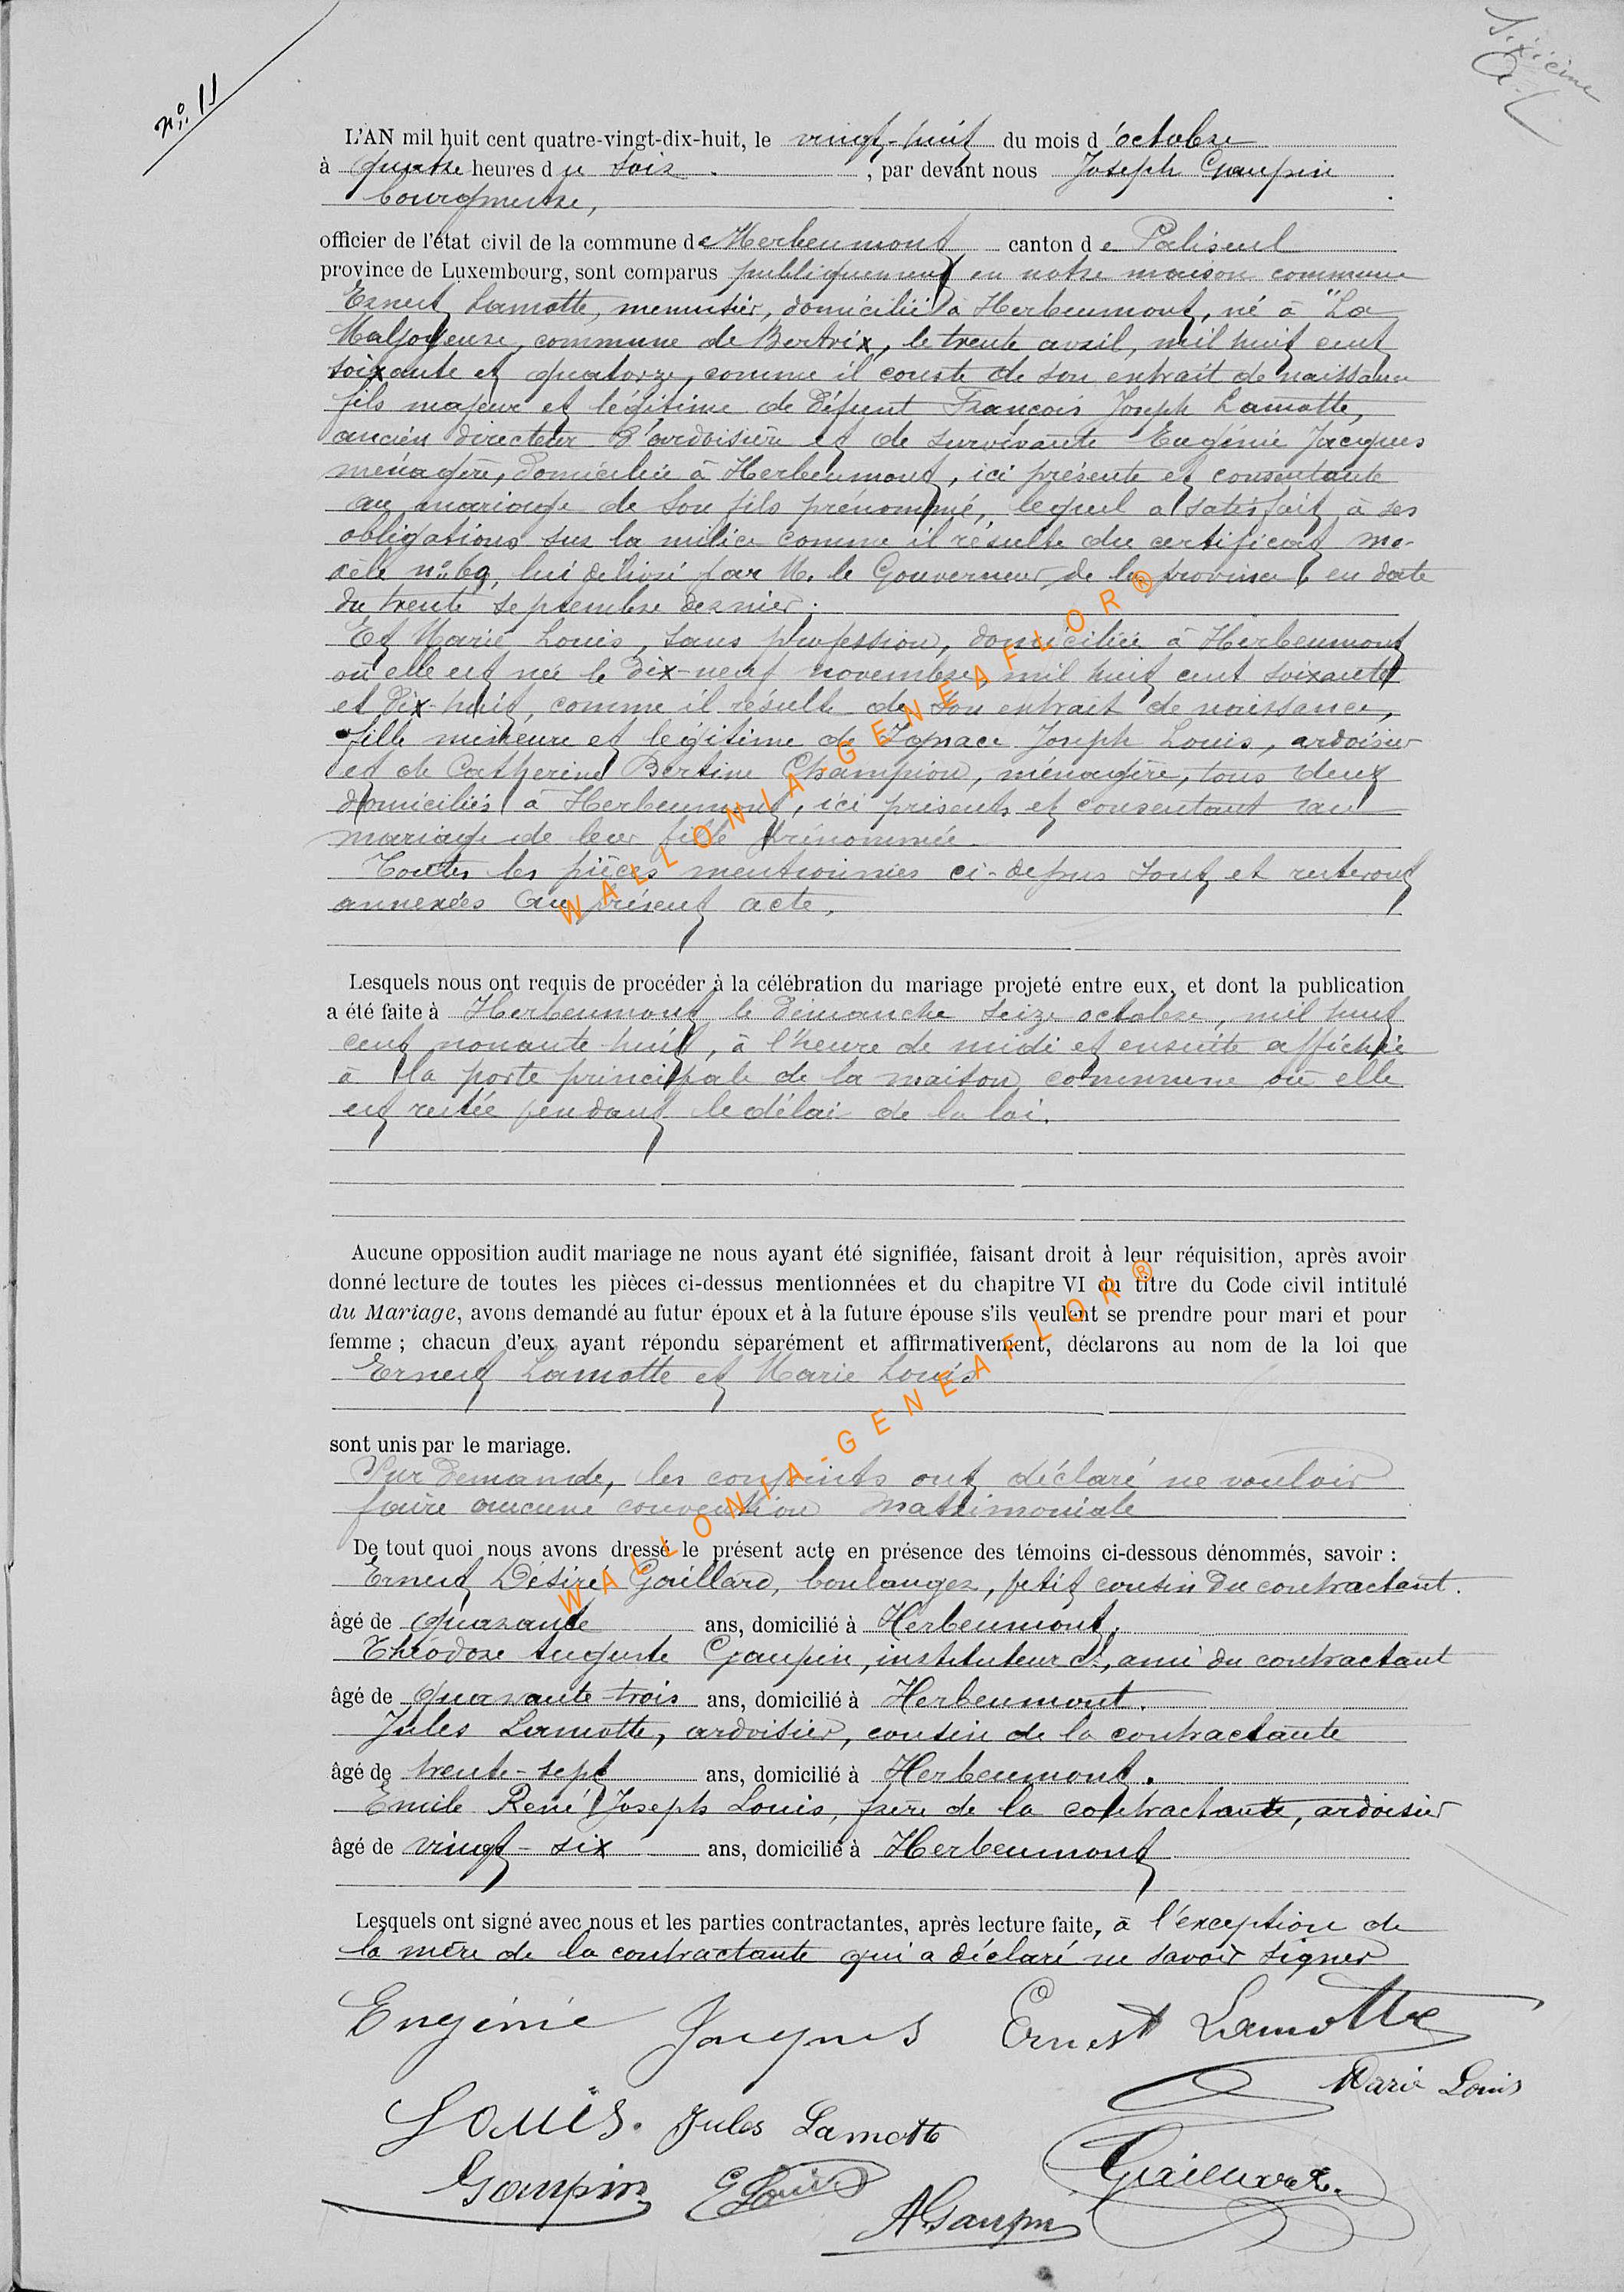 Sixième
n° 11
L'AN mil huit cent quatre-vingt-dix-huit, le vingt-huit du mois d'octobre
à quatre heures du soir. , par devant nous Joseph Gaupin
bourgmestre,
officier de l'état civil de la commune de Herbeumont canton de Paliseul
province de Luxembourg, sont comparus publiquement en notre maison commune
Ernest Lamotte, menuisier, domicilié à Herbeumont, né à "La
Maljoyeuse, commune de Bertrix, le trente avril, mil huit cent
soixante et quatorze, comme il conste de son extrait de naissance
fils majeur et légitime de défunt François Joseph Lamotte,
ancien directeur d'ardoisière et de survivante Eugénie Jacques
ménagère, domiciliée à Herbeumont, ici présente et consentante
au mariage de son fils prénommé, lequel a satisfait à ses
obligations sur la milice comme il résulte du certificat mo-
dèle n° 69, lui délivré par M. le Gouverneur de la province, en date
du trente septembre dernier;
Et Marie Louis, sans profession, domiciliée à Herbeumont
où elle est née le dix-neuf novembre, mil huit cent soixante
et dix-huit, comme il résulte de son extrait de naissance,
fille mineure et légitime de Ignace Joseph Louis, ardoisier
et de Catherine Bertine Champion, ménagère, tous deux
domiciliés à Herbeumont, ici présents et consentant au
mariage de leur fille prénommée.
Toutes les pièces mentionnées ci-dessus sont et resteront
annexées au présent acte.
Lesquels nous ont requis de procéder à la célébration du mariage projeté entre eux, et dont la publication
a été faite à Herbeumont le dimanche seize octobre, mil huit
cent nonante-huit, à l'heure de midi et ensuite affichée
à la porte principale de la maison commune où elle
est restée pendant le délai de la loi.
Aucune opposition audit mariage ne nous ayant été signifiée, faisant droit à leur réquisition, après avoir
donné lecture de toutes les pièces ci-dessus mentionnées et du chapitre VI du titre du Code civil intitulé
du Mariage, avons demandé au futur époux et à la future épouse s'ils veulent se prendre pour mari et pour
femme ; chacun d'eux ayant répondu séparément et affirmativement, déclarons au nom de la loi que
Ernest Lamotte et Marie Louis
sont unis par le mariage.
Sur demande, les conjoints ont déclaré ne vouloir
faire aucune convention matrimoniale
De tout quoi nous avons dressé le présent acte en présence des témoins ci-dessous dénommés, savoir :
Ernest Désiré Gaillard, boulanger, petit cousin du contractant.
âgé de quarante ans, domicilié à Herbeumont.
Théodore Auguste Gaupin, instituteur cl, ami du contractant
âgé de quarante-trois ans, domicilié à Herbeumont.
Jules Lamotte, ardoisier, cousin de la contractante
âgé de trente-sept ans, domicilié à Herbeumont.
Emile René Joseph Louis, frère de la contractante, ardoisier
âgé de vingt-six ans, domicilié à Herbeumont
Lesquels ont signé avec nous et les parties contractantes, après lecture faite, à l'exception de
la mère de la contractante qui a déclaré ne savoir signer
Eugénie Jacques Ernest Lamotte
Marie Louis
Louis. Jules Lamotte
Gaupin E Louis Gaillard.
A Gaupin
WALLONIA-GENEAFLOR®
WALLONIA-GENEAFLOR®